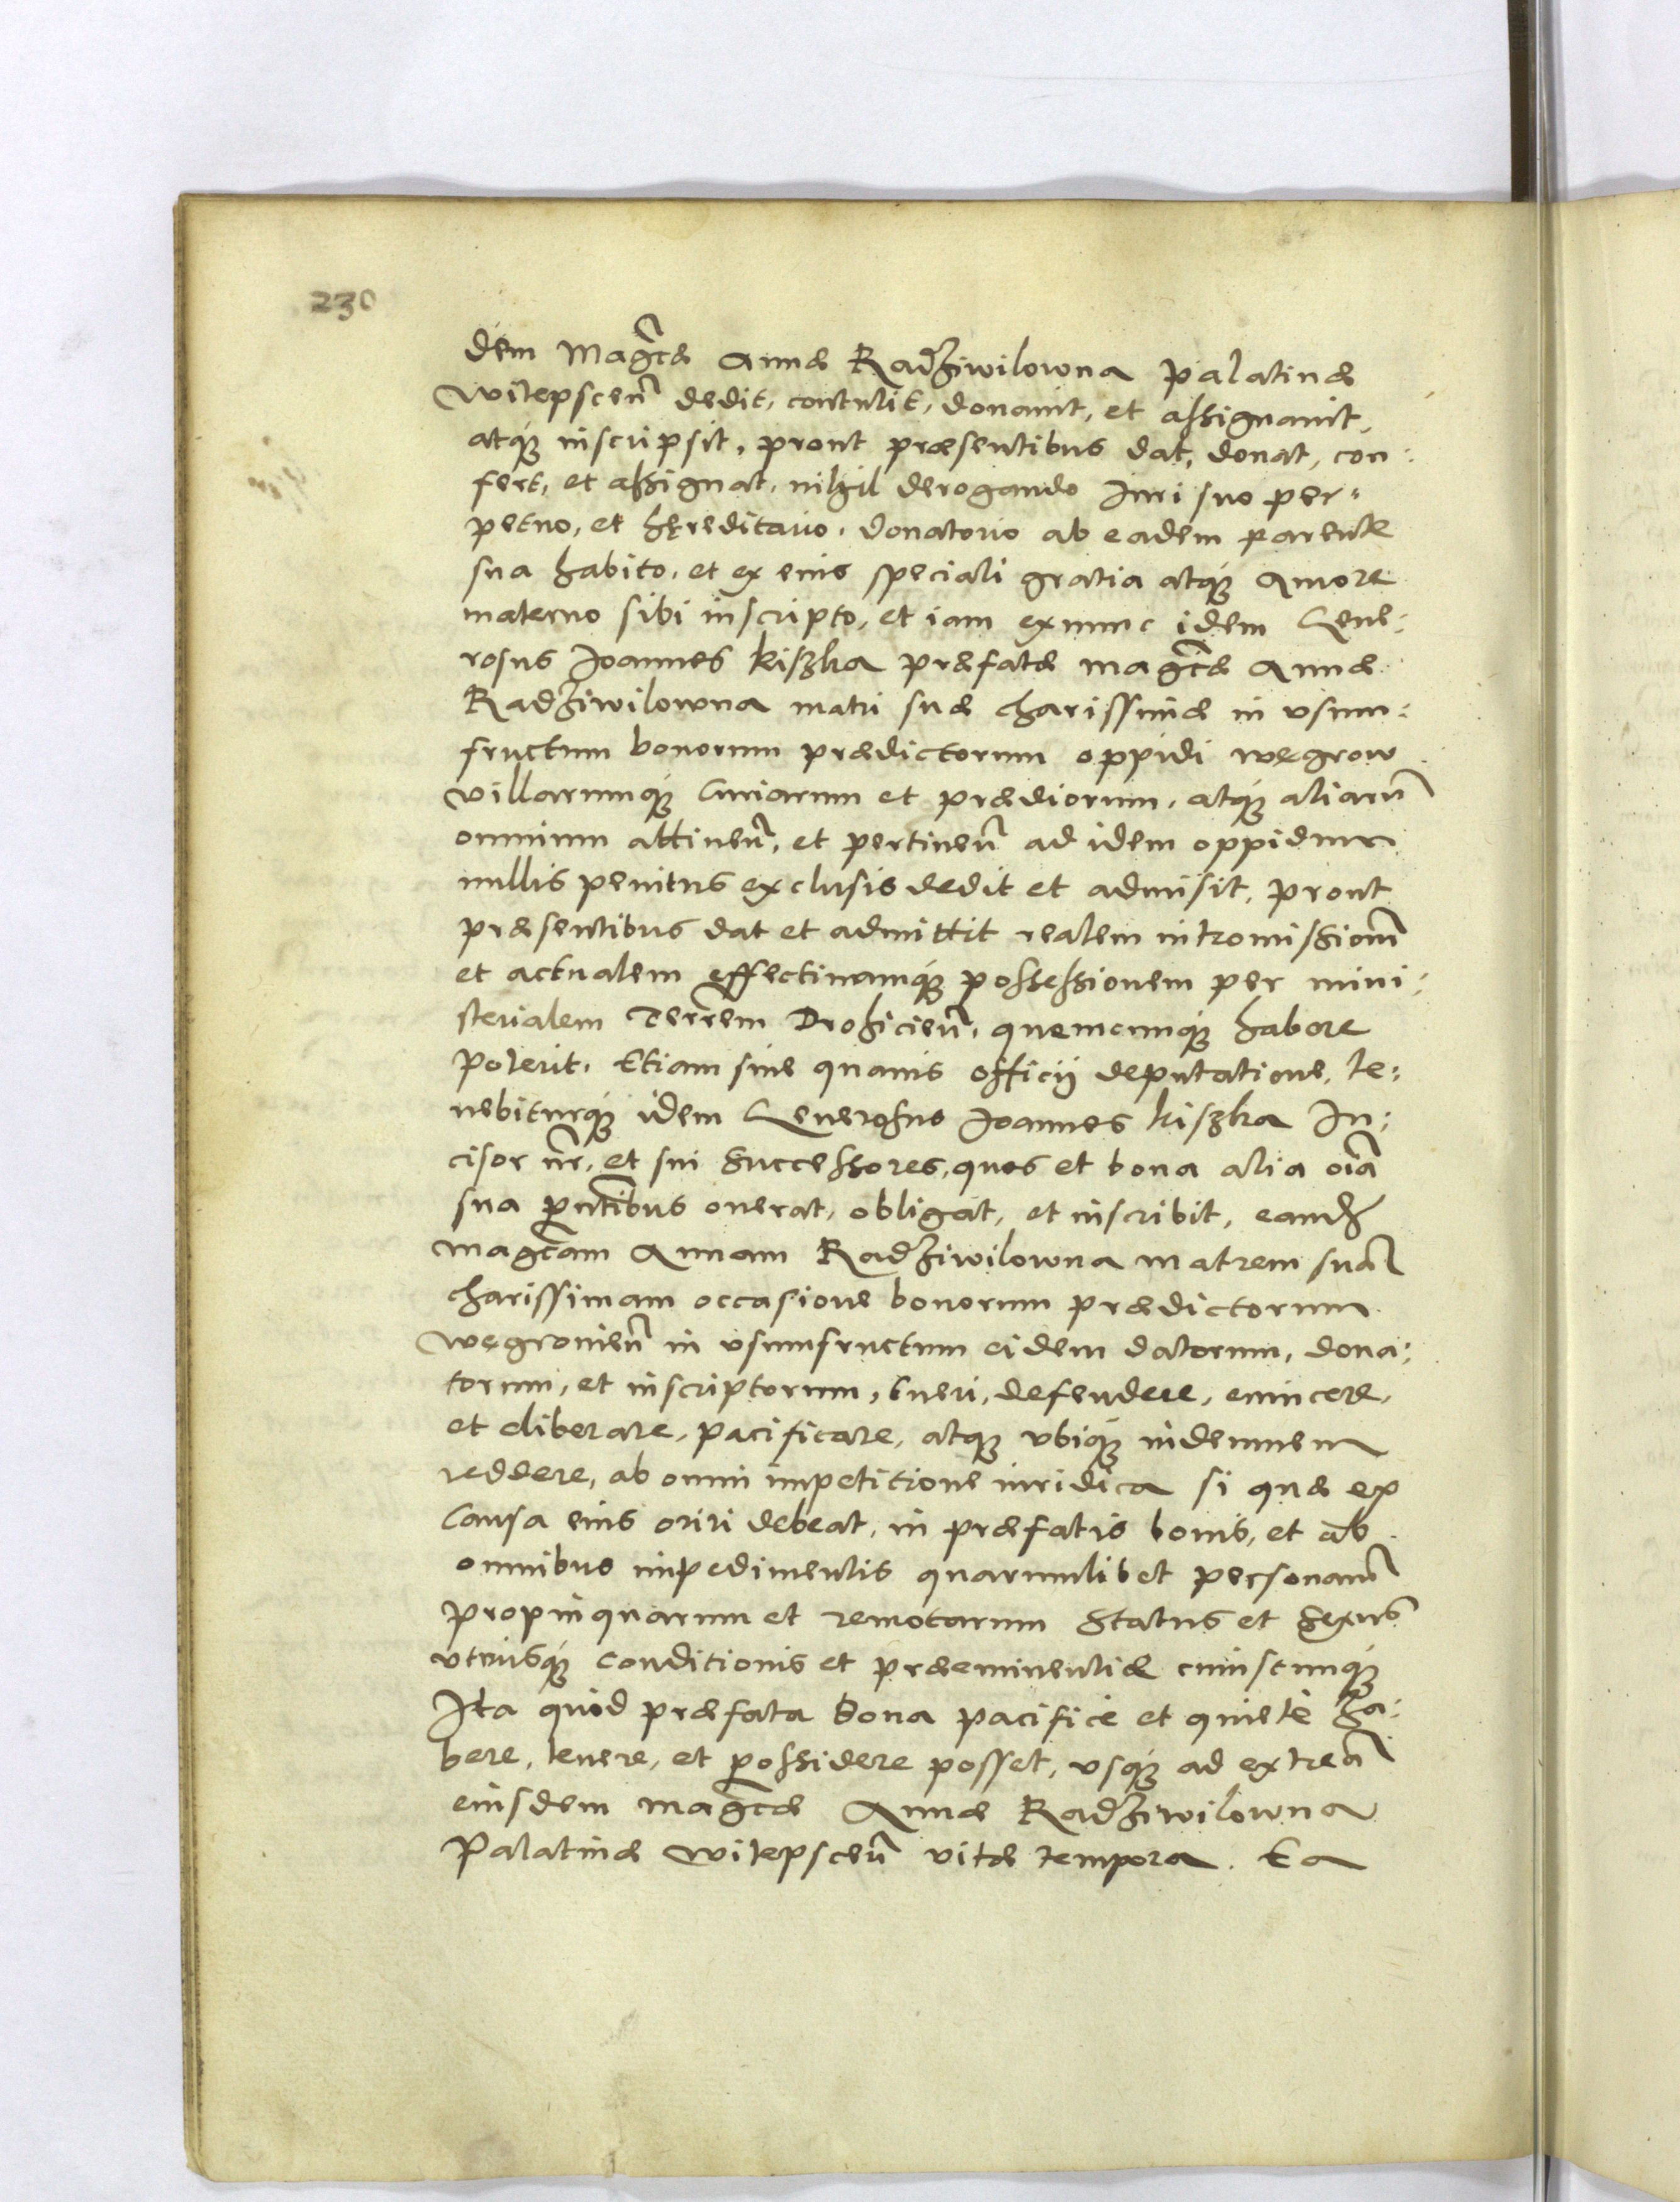 230
dem Magcæ Annæ Radziwilowna Palatinæ
Witepscen dedit, contulit, donauit, et assignauit,
atque inscripsit, prout præsentibus dat, donat, con:
fert, et assignat, nihil derogando Iuri suo per:
petuo, et hęreditario, donatorio ab eadem parente
sua habito, et ex eius speciali gratia atque Amore
materno sibi inscripto, et iam exnunc idem Gene:
rosus Joannes Kiszka præfatæ Magcæ Annæ
Radziwilowna matri suæ charissimæ in vsum:
fructum bonorum prædictorum oppidi Wegrow
Villarumque Curiarum et prædiorum, atque aliarum
omnium attinen, et pertinen ad idem oppidum
nullis penitus exclusis dedit et admisit, prout
præsentibus dat et admittit realem intromissionem
et actualem effectiuamque possessionem per mini:
sterialem Terrem Drohicien, quemcunque habere
poterit, Etiam sine quauis officij deputatione, te:
nebiturque idem Generosus Joannes Kiszka In:
cisor nr, et sui Successores, quos et bona alia oia
sua pntibus onerat, obligat, et inscribit, eandem
Magcam Annam Radziwilowna matrem suam
charissimam occasione bonorum prædictorum
Wegrouien in vsumfructum eidem datorum, dona:
torum, et inscriptorum, tueri, defendere, euincere,
et eliberare, pacificare, atque vbique indemnem
reddere, ab omni impetitione iuridica si quæ ex
Causa eius oriri debeat, in præfatis bonis, et ab
omnibus impedimentis quarumlibet personarum
propinquarum et remotarum Status et Sexus
vtriusque conditionis et præeminentiæ cuiuscunque
Ita quòd præfata bona pacificè et quietè ha:
bere, tenere, et possidere posset, vsque ad extrema
eiusdem Magcæ Annæ Radziwilowna
Palatinæ Witepscen vitæ tempora. Ea